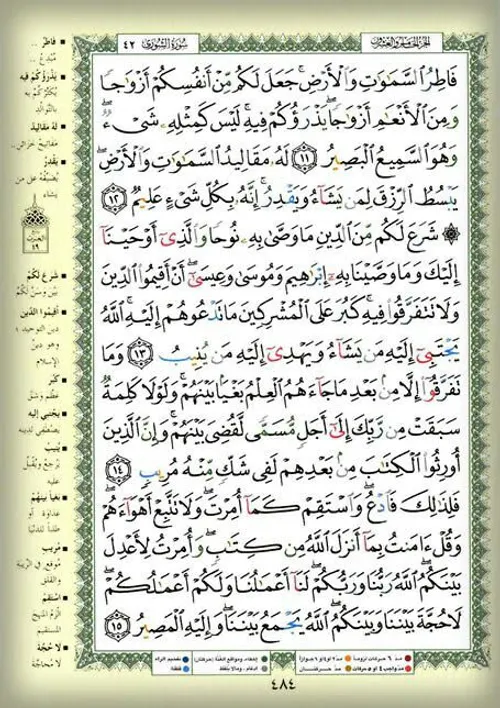 الجزء الخامس والعشرون
سورة الشورى
٤٢
فَاطِرُ السَّمَاوَاتِ وَالْأَرْضِ جَعَلَ لَكُم مِّنْ أَنفُسِكُمْ أَزْوَاجًا
وَمِنَ الْأَنْعَامِ أَزْوَاجًا يَذْرَؤُكُمْ فِيهِ لَيْسَ كَمِثْلِهِ شَيْءٌ
وَهُوَ السَّمِيعُ الْبَصِيرُ ١١ لَهُ مَقَالِيدُ السَّمَاوَاتِ وَالْأَرْضِ
يَبْسُطُ الرِّزْقَ لِمَن يَشَاءُ وَيَقْدِرُ إِنَّهُ بِكُلِّ شَيْءٍ عَلِيمٌ ١٢
۞ شَرَعَ لَكُم مِّنَ الدِّينِ مَا وَصَّىٰ بِهِ نُوحًا وَالَّذِي أَوْحَيْنَا
إِلَيْكَ وَمَا وَصَّيْنَا بِهِ إِبْرَاهِيمَ وَمُوسَىٰ وَعِيسَىٰ أَنْ أَقِيمُوا الدِّينَ
وَلَا تَتَفَرَّقُوا فِيهِ كَبُرَ عَلَى الْمُشْرِكِينَ مَا تَدْعُوهُمْ إِلَيْهِ اللَّهُ
يَجْتَبِي إِلَيْهِ مَن يَشَاءُ وَيَهْدِي إِلَيْهِ مَن يُنِيبُ ١٣ وَمَا
تَفَرَّقُوا إِلَّا مِن بَعْدِ مَا جَاءَهُمُ الْعِلْمُ بَغْيًا بَيْنَهُمْ وَلَوْلَا كَلِمَةٌ
سَبَقَتْ مِن رَّبِّكَ إِلَىٰ أَجَلٍ مُّسَمًّى لَّقُضِيَ بَيْنَهُمْ وَإِنَّ الَّذِينَ
أُورِثُوا الْكِتَابَ مِن بَعْدِهِمْ لَفِي شَكٍّ مِّنْهُ مُرِيبٍ ١٤
فَلِذَٰلِكَ فَادْعُ وَاسْتَقِمْ كَمَا أُمِرْتَ وَلَا تَتَّبِعْ أَهْوَاءَهُمْ
وَقُلْ ءَامَنتُ بِمَا أَنزَلَ اللَّهُ مِن كِتَابٍ وَأُمِرْتُ لِأَعْدِلَ
بَيْنَكُمُ اللَّهُ رَبُّنَا وَرَبُّكُمْ لَنَا أَعْمَالُنَا وَلَكُمْ أَعْمَالُكُمْ
لَا حُجَّةَ بَيْنَنَا وَبَيْنَكُمُ اللَّهُ يَجْمَعُ بَيْنَنَا وَإِلَيْهِ الْمَصِيرُ ١٥
فاطر ..
مُبدع ..
يذرؤكم فيه
يكثّركم به
بالتوالد
له مقاليد
مفاتيح خزائن ..
يقدر
يضيّقه على من
يشاء
شرع لكم
بيّن وسنّ لكم
أقيموا الدين
دين التوحيد ؛
وهو دين
الإسلام
كبر
عظم وشقّ
يجتبي إليه
يصطفي لدينه
ينيب
يرجع ويُقبل
عليه
بغيا بينهم
عداوة أو
طلباً للدنيا
مريب
موقع في الريبة
والقلق
استقم
الزم المنهج
المستقيم
لا حجة
لا محاجّة
مدّ ٦ حركات لزوماً
مدّ ٢ أو ٤ أو ٦ جوازاً
إخفاء، ومواقع الغنّة (حركتان)
تفخيم الراء
مدّ واجب ٤ أو ٥ حركات
مدّ حركتان
إدغام، وما لا يُلفظ
قلقلة
٤٨٤